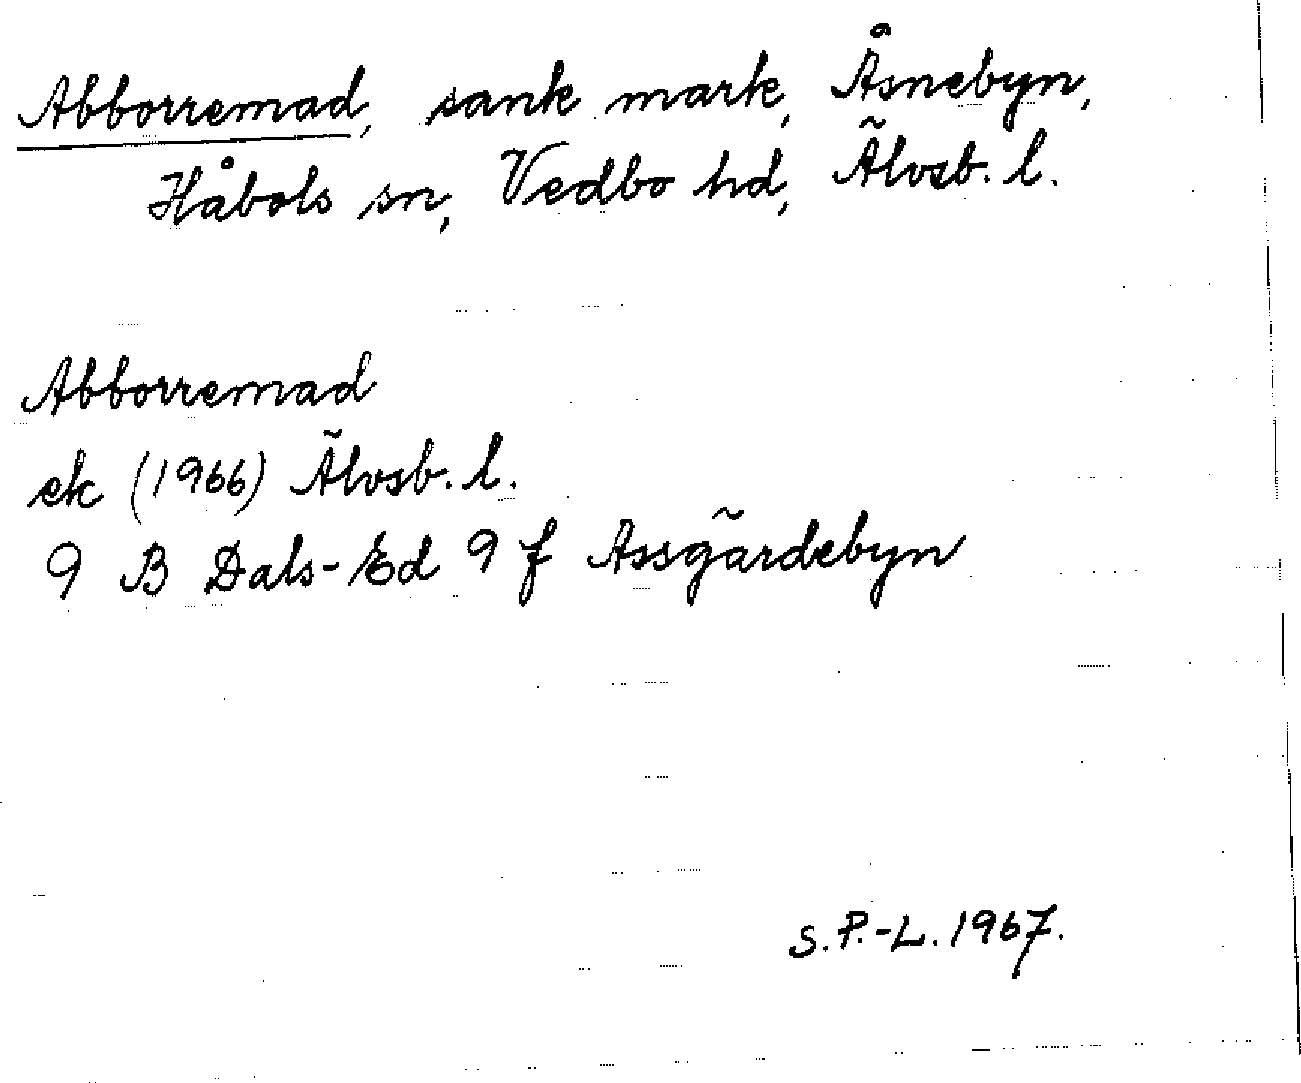 Abborremad, sank mark, Åsnebyn,
Håbols sn, Vedbo hd, Älvsb. l.
Abborremad
ek (1966) Älvsb. l.
9 B Dals-Ed 9 f Assgärdebyn
S. P.-L. 1967.